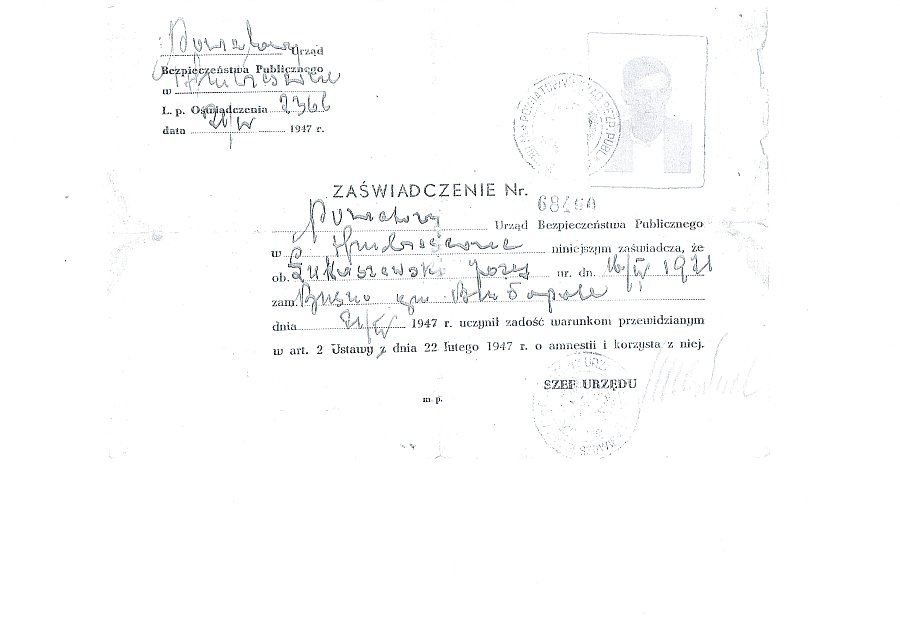 Powiatowy Urząd
Bezpieczeństwa Publicznego
w Hrubieszowie
L. p. Oświadczenia 2366
data 21/IV 1947 r.
POWIATOWY URZĄD BEZP. PUBL.
ZAŚWIADCZENIE Nr. 68460
Powiatowy Urząd Bezpieczeństwa Publicznego
w Hrubieszowie niniejszym zaświadcza, że
ob. Łukaszewski Józef ur. dn. 1921
zam. Busno gm. Białopole
dnia 21/IV 1947 r. uczynił zadość warunkom przewidzianym
w art. 2 Ustawy z dnia 22 lutego 1947 r. o amnestii i korzysta z niej.
SZEF URZĘDU
m. p.